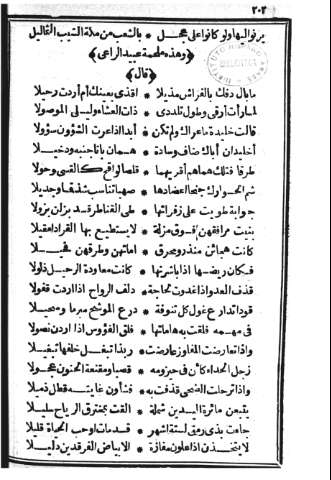 ٢٠٢
يرنو اليها ولو كانوا على عجل * بالشعب من
﴿ وهذه ملحمة عبيد الراعى ﴾
﴿ قال ﴾
ما بال دفك بالفراش مذيلا * اقذى بعينك أم أردت رحيلا
لما رأت أرقى وطول تلددى * ذات العشاء وليلى الموصولا
قالت خليدة ما عراك ولم تكن * أبدا اذا عرت الشؤون سؤولا
أخليد ان أباك ضاف وساده * همان باتا جنبة ودخيلا
طرقا فتلك هماهم أقريهما * قلصا لواقح كالقسى وحولا
شم الحوارك جنحا أعضادها * صهبا تناسب شدقما وجديلا
جوابة طويت على زفراتها * طى القناطر قد بزلن بزولا
بنيت مرافقهن فوق مزلة * لا يستطيع بها القراد مقيلا
كانت هجائن منذر ومحرق * أماتهن وطرقهن فحيلا
فكان ريضها اذا باشرتها * كانت معاودة الرحيل ذلولا
قذف الغدو اذا غدون لحاجة * دلف الرواح اذا أردت قفولا
قودا تذارع غول كل تنوفة * ذرع الموشح مبرما وسحيلا
فى مهمه قلقت به هاماتها * قلق الفؤوس اذا أردن نصولا
واذا تعارضت المفاوز عارضت * ربذا تبغل خلفها تبغيلا
زجل الحداء كأن فى حيزومه * قصبا ومقنعة الحنين عجولا
واذا ترحلت الضحى قذفت به * فشأون غايته فظل ذميلا
يتبعن مائرة اليدين شملة * ألقت بمخترق الرياح سليلا
جاءت بذى رمق لستة أشهر * قد مات أو حب الحياة قليلا
لا يتخذن اذا علون مفازة * الا بياض الفرقدين دليلا